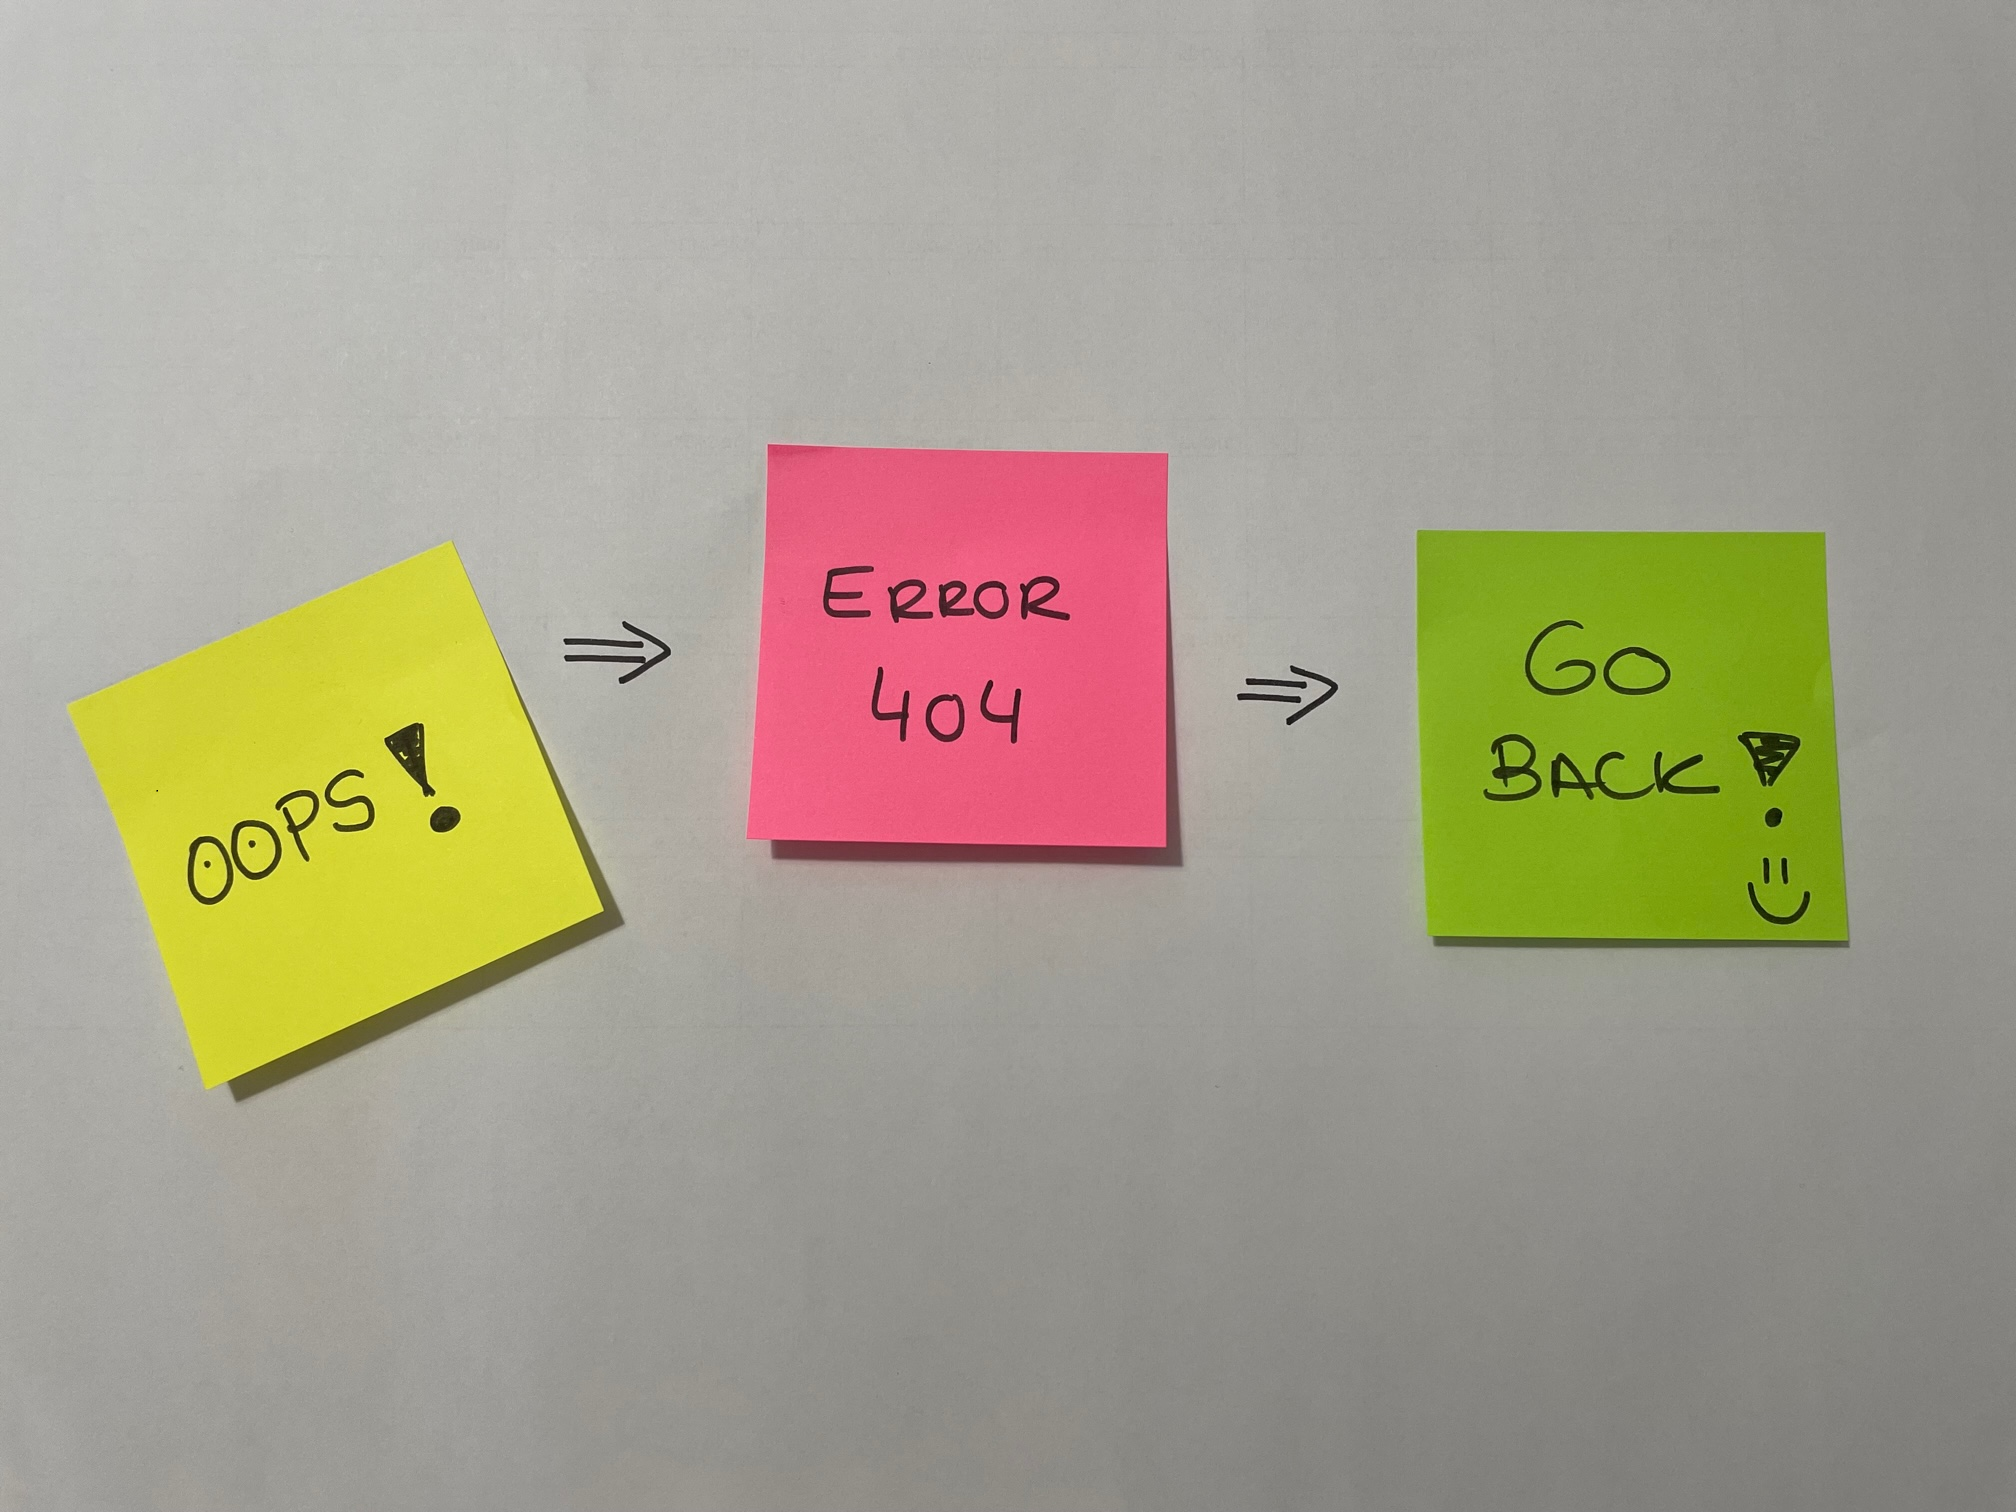 OOPS!
⇒
ERROR
404
⇒
GO
BACK!